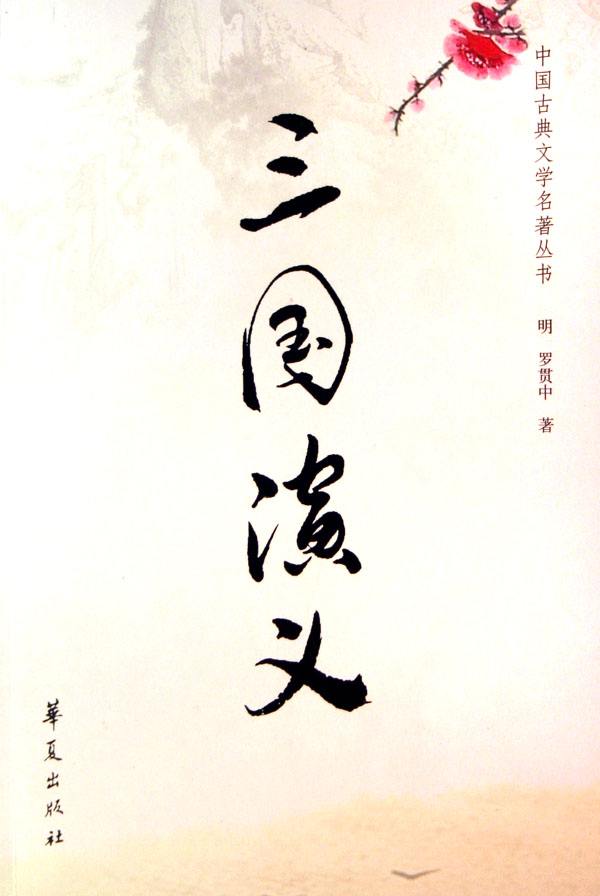 中国古典文学名著丛书 明 罗贯中 著
三国演义
華夏出版社